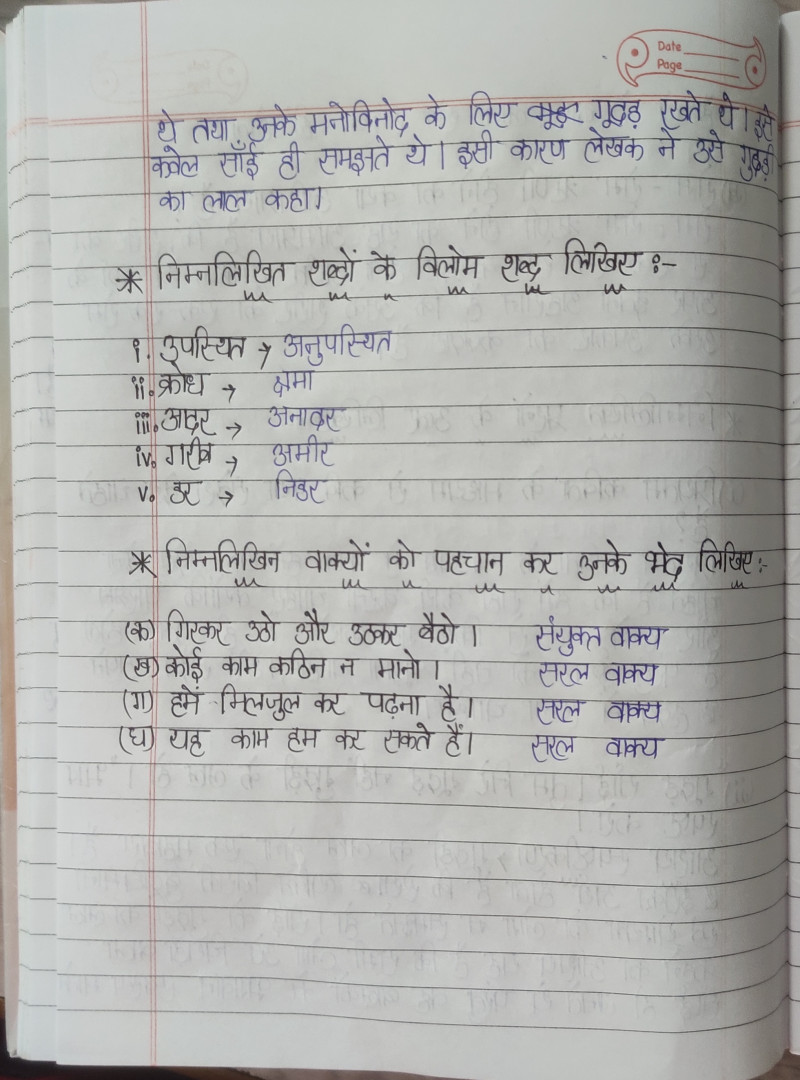 Date
Page
थे तथा उनके मनोविनोद के लिए गूदड़ रखते थे। इसे
कवेल साँई ही समझते थे। इसी कारण लेखक ने उसे गुदड़ी
का लाल कहा।
* निम्नलिखित शब्दों के विलोम शब्द लिखिए :-
i. उपस्थित → अनुपस्थित
ii. क्रोध → क्षमा
iii. आदर → अनादर
iv. गरीब → अमीर
v. डर → निडर
* निम्नलिखिन वाक्यों को पहचान कर उनके भेद लिखिए:-
(क) गिरकर उठो और उठकर बैठो। संयुक्त वाक्य
(ख) कोई काम कठिन न मानो। सरल वाक्य
(ग) हमें मिलजुल कर पढ़ना है। सरल वाक्य
(घ) यह काम हम कर सकते हैं। सरल वाक्य